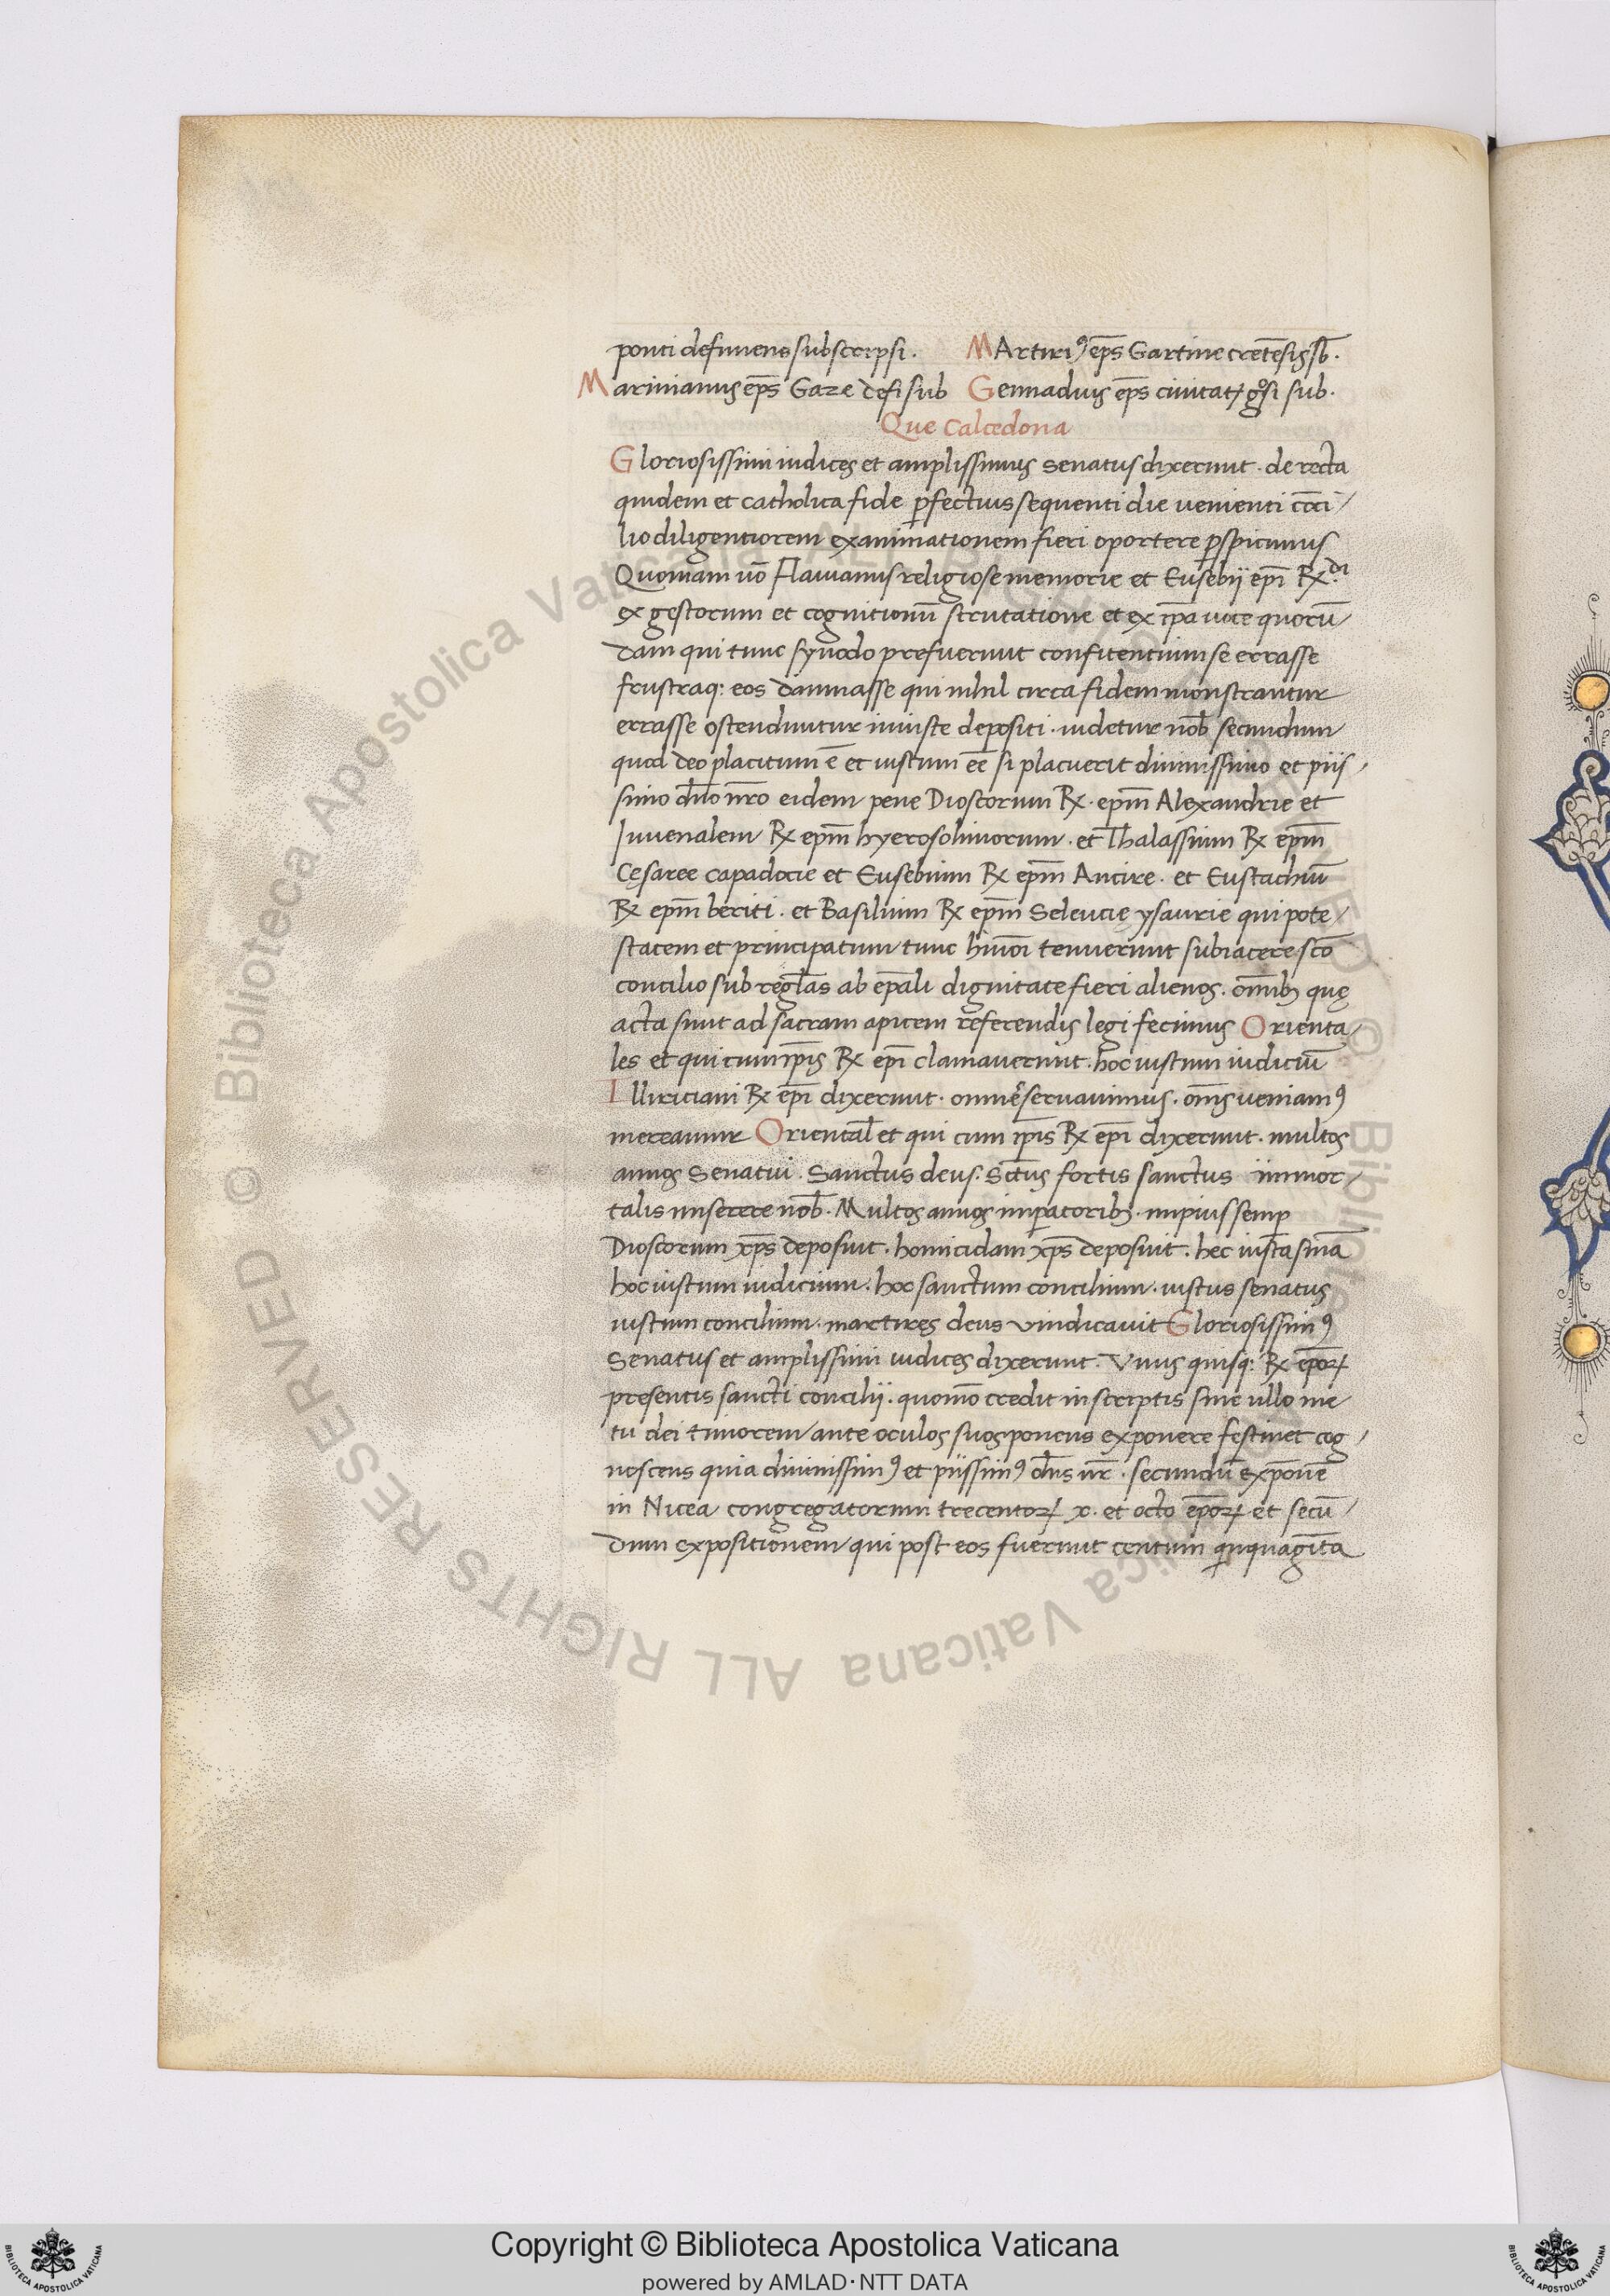 ponti definiens subscripsi. MArtiriꝯ ep̄s Gartine cret̄esis sb̄.
Marinianus ep̄s Gaze defi sub Gennadius ep̄s civitatꝭ gosi sub.
Que Calcedona
Gloriosissimi iudices et amplissimus senatus dixerunt. de recta
quidem et catholica fide ꝑfectius sequenti die venienti cōci
lio diligentiorem examinationem fieri oportere ꝑspicimus
Quoniam uō Flavianus religiose memorie et Eusebij ep̄i R̄x.di
ex gestorum et cognitionū scrutatione et ex ip̄a voce quorū
dam qui tunc synodo prefuerunt confitentium se errasse
frustraq: eos damnasse qui nihil circa fidem monstrantur
errasse ostenduntur iniuste depositi. uidetur nob̄ secundum
quod deo placitum ē et iustum eē si placuerit divinissimo et piis
simo dn̄o nr̄o eidem pene Dioscorum Rx. ep̄m Alexandrie et
Iuvenalem Rx ep̄m hyerosolimorum. et Thalassium Rx ep̄m
Cęsaree capadocie et Eusebium Rx ep̄m Ancire. et Eustachiū
Rx ep̄m beriti. et Basilium Rx ep̄m Seleucie ysaurie qui pote
statem et principatum tunc hiuōi tenuerunt subiacere scō
concilio sub reglas ab ep̄ali dignitate fieri alienos. om̄ibꝫ quę
acta sunt ad sacram apicem referendis legi fecimus Orienta
les et qui cum ip̄is Rx ep̄i clamaverunt. hoc iustum iudiciū
Illiriciani Rx ep̄i dixerunt. omnes servavimus. om̄s veniamꝯ
mereamur Oriental̄ et qui cum ip̄is Rx ep̄i dixerunt. multos
annos Senatui. Sanctus deus. Sc̄tus fortis sanctus immor
talis miserere nob̄. Multos annos imꝑatoribꝫ. impius semp
Dioscorum xp̄s deposuit. homicidam xp̄s deposuit. hec iusta sn̄ia
hoc iustum iudicium. hoc sanctum concilium. iustus senatus
iustum concilium. martires deus vindicavit Gloriosissimꝯ
Senatus et amplissimi iudices dixerunt. Vnus quisq: Rx ep̄oꝝ
presentis sancti concilij. quomō credit in scriptis sine ullo me
tu dei timorem ante oculos suos ponens exponere festinet cog
noscens quia divinissimꝯ et piissimꝯ dn̄s nr̄. secundū exp̄onē
in Nicea congregatorum trecentoꝝ x. et octo ep̄oꝝ et secū
dum expositionem qui post eos fuerunt centum quinquaginta
Copyright © Biblioteca Apostolica Vaticana
powered by AMLAD·NTT DATA
© Biblioteca Apostolica Vaticana ALL RIGHTS RESERVED